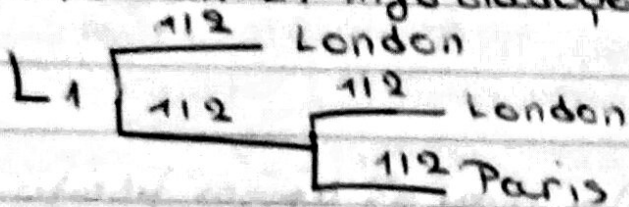 1/2 London
L1 1/2 1/2 London
1/2 Paris